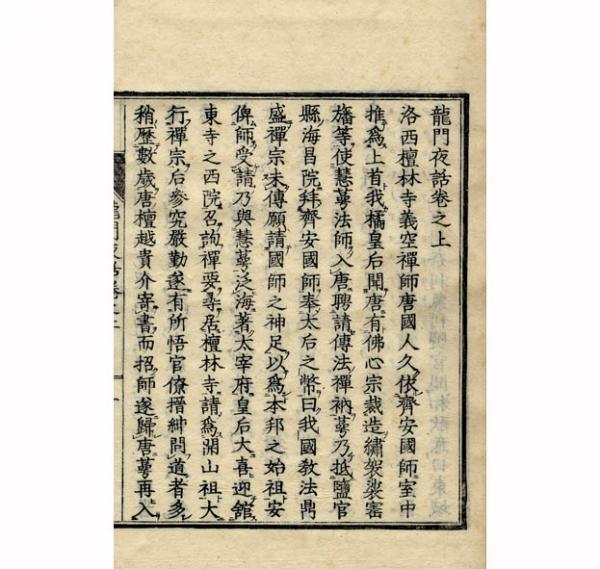 龍門夜話卷之上
洛西檀林寺義空禪師唐國人久依齊安國師室中
推爲上首我橘皇后聞唐有佛心宗裁造繡袈裟寶
旛等使慧萼法師入唐聘請傳法禪衲萼乃抵鹽官
縣海昌院拜齊安國師奉太后之幣曰我國敎法鼎
盛禪宗未傳願請國師之神足以爲本邦之始祖安
俾師受請乃與慧萼泛海著太宰府皇后大喜迎館
東寺之西院召詢禪要尋居檀林寺請爲開山祖大
行禪宗后參究嚴勤遂有所悟官僚搢紳問道者多
稍歷數歲唐檀越貴介寄書而招師遂歸唐萼再入
龍門夜話卷之上